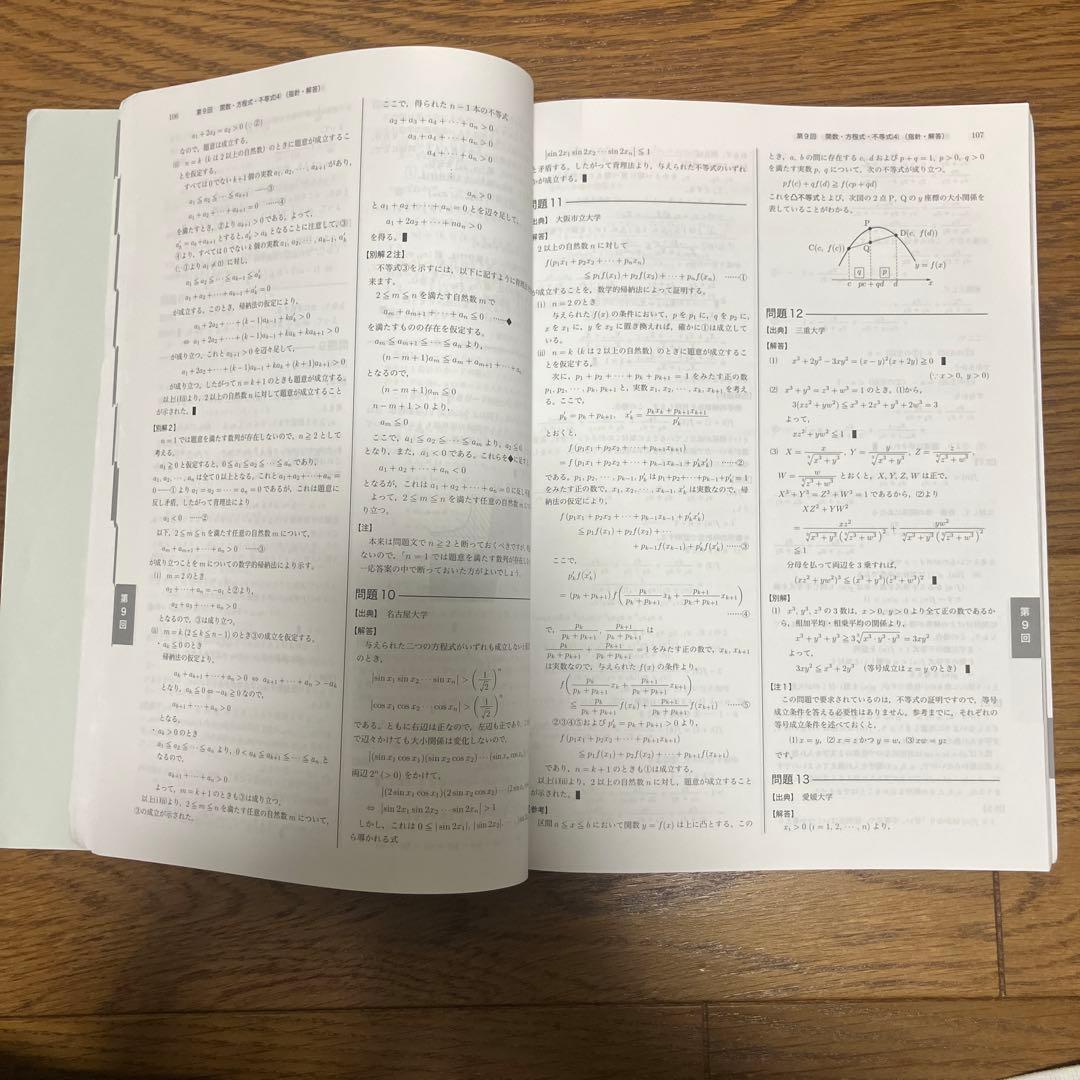 106 第9回 関数・方程式・不等式④(指針・解答)
a₁+2a₂=a₂>0 (∵②)
なので,題意は成立する.
(ii) n=k (k は2以上の自然数) のときに題意が成立するこ
とを仮定する.
すべては0でない k+1 個の実数 a₁, a₂, …, aₖ₊₁ があり,
a₁≦a₂≦…≦aₖ₊₁ ……③
a₁+a₂+…+aₖ₊₁=0 ……④
を満たすとき,②より aₖ₊₁>0 である.よって,
a′ₖ=aₖ+aₖ₊₁ とすると, a′ₖ>aₖ となることに注意して,③
④より,すべては0でない k 個の実数 a₁, a₂, …, aₖ₋₁, a′ₖ
(∵①より a₁≠0) に対し,
a₁≦a₂≦…≦aₖ₋₁≦a′ₖ
a₁+a₂+…+aₖ₋₁+a′ₖ=0
が成立する.このとき,帰納法の仮定により,
a₁+2a₂+…+(k−1)aₖ₋₁+ka′ₖ>0
⇔ a₁+2a₂+…+(k−1)aₖ₋₁+kaₖ+kaₖ₊₁>0
が成り立つ.これと aₖ₊₁>0 を辺々足して,
a₁+2a₂+…+(k−1)aₖ₋₁+kaₖ+(k+1)aₖ₊₁>0
が成り立つ.したがって n=k+1 のときも題意が成立する.
以上(i)(ii)より,2以上の自然数 n に対して題意が成立すること
が示された.
【別解2】
n=1 では題意を満たす数列が存在しないので,n≧2 として
考える.
a₁≧0 と仮定すると, 0≦a₁≦a₂≦…≦aₙ であり,
a₁, a₂, …, aₙ は全て0以上となる.これと a₁+a₂+…+aₙ=
0 ……① より a₁=a₂=…=aₙ=0 であるが,これは題意に
反し矛盾.したがって背理法により
a₁<0 ……②
以下, 2≦m≦n を満たす任意の自然数 m について,
aₘ+aₘ₊₁+…+aₙ>0 ……③
が成り立つことを m についての数学的帰納法により示す.
(i) m=2 のとき
a₂+…+aₙ=−a₁ と②より,
a₂+a₃+…+aₙ>0
となるので,③は成り立つ.
(ii) m=k (2≦k≦n−1) のとき③の成立を仮定する.
・aₖ≦0 のとき
帰納法の仮定より,
aₖ+aₖ₊₁+…+aₙ>0 ⇔ aₖ₊₁+…+aₙ>−aₖ
となり, aₖ≦0⇔−aₖ≧0 なので,
aₖ₊₁+…+aₙ>0
となる.
・aₖ>0 のとき
a₁≦a₂≦…≦aₙ より, 0<aₖ≦aₖ₊₁≦…≦aₙ と
なるので,
aₖ₊₁+…+aₙ>0
よって, m=k+1 のときも③は成り立つ.
以上(i)(ii)より, 2≦m≦n を満たす任意の自然数 m について,
③の成立が示された.
第9回
ここで,得られた n−1 本の不等式
a₂+a₃+a₄+…+aₙ>0
a₃+a₄+…+aₙ>0
a₄+…+aₙ>0
⋮
aₙ>0
と a₁+a₂+…+aₙ=0 とを辺々足して,
a₁+2a₂+…+naₙ>0
を得る.
【別解2注】
不等式③を示すには,以下に記すように背理法
来ます.
2≦m≦n を満たす自然数 m で
aₘ+aₘ₊₁+…+aₙ≦0 ……◆
を満たすものの存在を仮定する.
aₘ≦aₘ₊₁≦…≦aₙ より,
(n−m+1)aₘ≦aₘ+aₘ₊₁+…
となるので,
(n−m+1)aₘ≦0
n−m+1>0 より,
aₘ≦0
ここで, a₁≦a₂≦…≦aₘ より, a₂≦0
となり,また, a₁<0 である.これらを◆に足す
a₁+a₂+…+aₙ<0
となるが,これは a₁+a₂+…+aₙ=0 に反し
よって, 2≦m≦n を満たす任意の自然数 m に
り立つ.
【注】
本来は問題文で n≧2 と断っておくべきですが,
ないので,「n=1 では題意を満たす数列が存在し
一応答案の中で断っておいた方がよいでしょう.
問題10
【出典】 名古屋大学
【解答】
与えられた二つの方程式がいずれも成立しない
のとき,
|sin x₁ sin x₂ … sin xₙ| > (1/√2)ⁿ
|cos x₁ cos x₂ … cos xₙ| > (1/√2)ⁿ
である.ともに右辺は正なので,左辺も正であり,
で辺々かけても大小関係は変化しないので,
|(sin x₁ cos x₁)(sin x₂ cos x₂)…(sin xₙ cos xₙ)
両辺 2ⁿ (>0) をかけて,
|(2 sin x₁ cos x₁)(2 sin x₂ cos x₂)…
⇔ |sin 2x₁ sin 2x₂ … sin 2xₙ|>1
しかし,これは 0≦|sin 2x₁|, |sin 2x₂|, …,
ら導かれる式
第9回 関数・方程式・不等式④(指針・解答) 107
|sin 2x₁ sin 2x₂ … sin 2xₙ|≦1
と矛盾する.したがって背理法より,与えられた不等式のいずれ
かが成立する.
問題11
【出典】 大阪市立大学
【解答】
2以上の自然数 n に対して
f(p₁x₁+p₂x₂+…+pₙxₙ)
≦p₁f(x₁)+p₂f(x₂)+…+pₙf(xₙ) ……①
が成立することを,数学的帰納法によって証明する.
(i) n=2 のとき
与えられた f(x) の条件において, p を p₁ に, q を p₂ に,
x を x₁ に, y を x₂ に置き換えれば,確かに①は成立して
いる.
(ii) n=k (k は2以上の自然数) のときに題意が成立するこ
とを仮定する.
次に, p₁+p₂+…+pₖ+pₖ₊₁=1 をみたす正の数
p₁, p₂, …, pₖ, pₖ₊₁ と,実数 x₁, x₂, …, xₖ, xₖ₊₁ を考え
る.ここで,
p′ₖ=pₖ+pₖ₊₁, x′ₖ=(pₖxₖ+pₖ₊₁xₖ₊₁)/p′ₖ
とおくと,
f(p₁x₁+p₂x₂+…+pₖ₊₁xₖ₊₁)
=f(p₁x₁+p₂x₂+…+pₖ₋₁xₖ₋₁+p′ₖx′ₖ) ……②
である. p₁, p₂, …, pₖ₋₁, p′ₖ は p₁+p₂+…+pₖ₋₁+p′ₖ=1
をみたす正の数で, x₁, x₂, …, xₖ₋₁, x′ₖ は実数なので,帰
納法の仮定により,
f(p₁x₁+p₂x₂+…+pₖ₋₁xₖ₋₁+p′ₖx′ₖ)
≦p₁f(x₁)+p₂f(x₂)+…
+pₖ₋₁f(xₖ₋₁)+p′ₖf(x′ₖ) ……③
ここで,
p′ₖf(x′ₖ)
=(pₖ+pₖ₊₁)f(pₖ/(pₖ+pₖ₊₁) xₖ+pₖ₊₁/(pₖ+pₖ₊₁) xₖ₊₁)
……④
で, pₖ/(pₖ+pₖ₊₁), pₖ₊₁/(pₖ+pₖ₊₁) は
pₖ/(pₖ+pₖ₊₁)+pₖ₊₁/(pₖ+pₖ₊₁)=1 をみたす正の数で, xₖ, xₖ₊₁
は実数なので,与えられた f(x) の条件より,
f(pₖ/(pₖ+pₖ₊₁) xₖ+pₖ₊₁/(pₖ+pₖ₊₁) xₖ₊₁)
≦pₖ/(pₖ+pₖ₊₁) f(xₖ)+pₖ₊₁/(pₖ+pₖ₊₁) f(xₖ₊₁) ……⑤
②③④⑤および p′ₖ=pₖ+pₖ₊₁>0 より,
f(p₁x₁+p₂x₂+…+pₖ₊₁xₖ₊₁)
≦p₁f(x₁)+p₂f(x₂)+…+pₖ₊₁f(xₖ₊₁)
であり, n=k+1 のときも①は成立する.
以上(i)(ii)より,2以上の自然数 n に対し,題意が成立すること
が示された.
【参考】
区間 a≦x≦b において関数 y=f(x) は上に凸とする.この
とき, a, b の間に存在する c, d および p+q=1, p>0, q>0
を満たす実数 p, q について,次の不等式が成り立つ.
pf(c)+qf(d)≧f(cp+qd)
これを凸不等式とよび,次図の2点 P, Q の y 座標の大小関係を
表していることがわかる.
P
C(c, f(c)) Q D(d, f(d))
q p y=f(x)
c pc+qd d x
問題12
【出典】 三重大学
【解答】
(1) x³+2y³−3xy²=(x−y)²(x+2y)≧0
(∵ x>0, y>0)
(2) x³+y³=z³+w³=1 のとき,(1)から,
3(xz²+yw²)≦x³+2z³+y³+2w³=3
よって,
xz²+yw²≦1
(3) X=x/∛(x³+y³), Y=y/∛(x³+y³), Z=z/∛(z³+w³),
W=w/∛(z³+w³) とおくと, X, Y, Z, W は正で,
X³+Y³=Z³+W³=1 であるから,(2)より
XZ²+YW²
=xz²/(∛(x³+y³)(∛(z³+w³))²)+yw²/(∛(x³+y³)(∛(z³+w³))²)
≦1
分母を払って両辺を3乗すれば,
(xz²+yw²)³≦(x³+y³)(z³+w³)²
【別解】
(1) x³, y³, z³ の3数は, x>0, y>0 より全て正の数であるか
ら,相加平均・相乗平均の関係より,
x³+y³+y³≧3∛(x³·y³·y³)=3xy²
よって,
3xy²≦x³+2y³ (等号成立は x=y のとき)
【注1】
この問題で要求されているのは,不等式の証明ですので,等号
成立条件を答える必要性はありません.参考までに,それぞれの
等号成立条件を述べておくと,
(1) x=y, (2) x=z かつ y=w, (3) xw=yz
です.
問題13
【出典】 愛媛大学
【解答】
xᵢ>0 (i=1, 2, …, n) より,
第9回